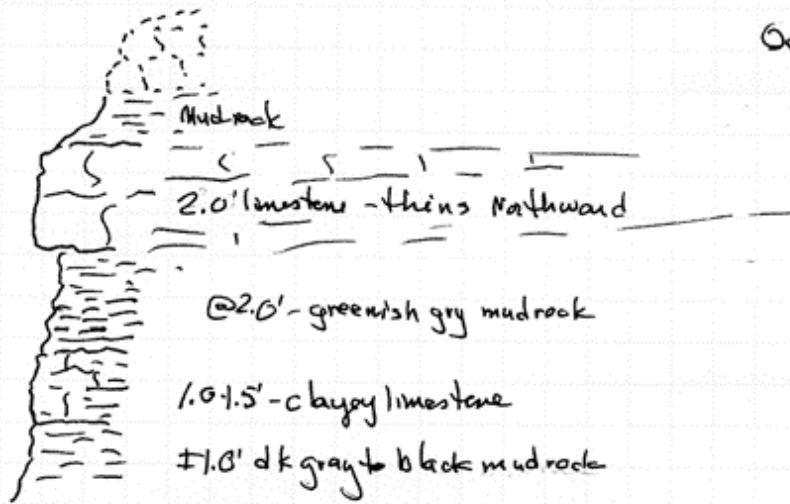 Mudrock
2.0' limestone - thins Northward
@2.0' - greenish gry mudrock
1.0-1.5' - clayey limestone
±1.0' dk gray to black mudrock